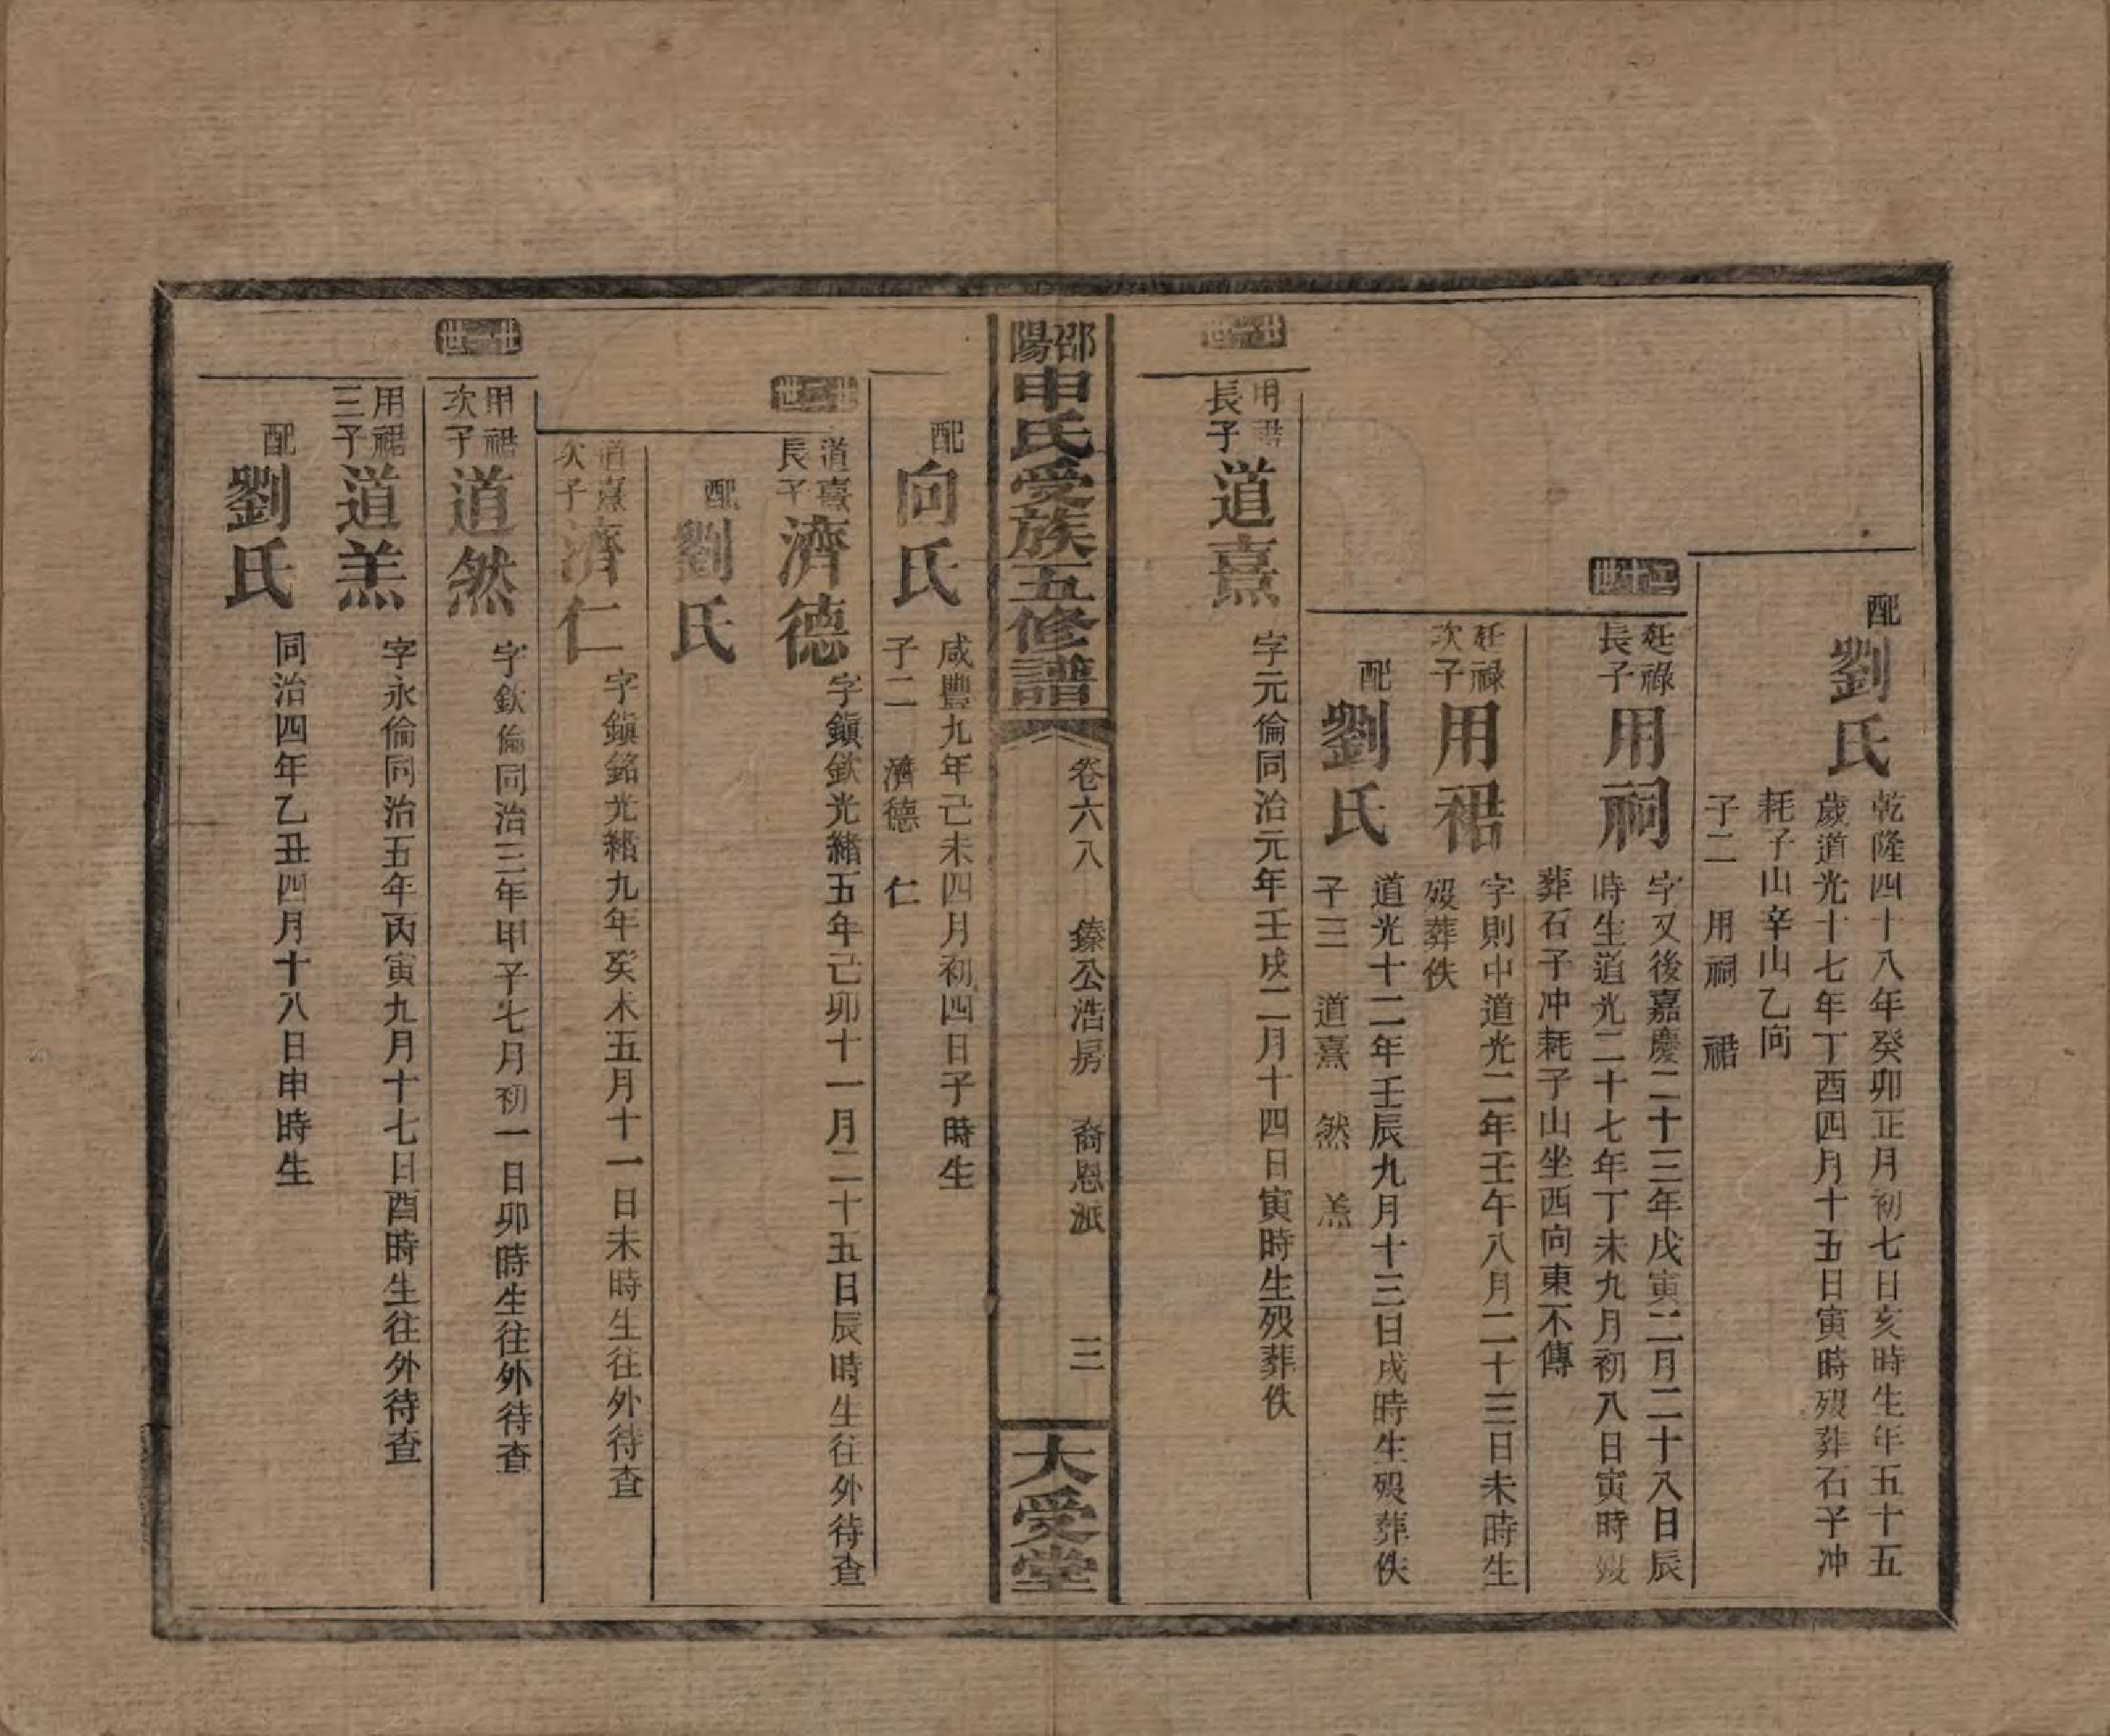 配
劉氏
乾隆四十八年癸卯正月初七日亥時生年五十五
歲道光十七年丁酉四月十五日寅時歿葬石子冲
耗子山辛山乙向
子二 用祠 𥙿
二十世
廷祿
長子
用祠
字又後嘉慶二十三年戊寅二月二十八日辰
時生道光二十七年丁未九月初八日寅時歿
葬石子冲耗子山坐西向東不傳
廷祿
次子
用
字則中道光二年壬午八月二十三日未時生
歿葬佚
配
劉氏
道光十二年壬辰九月十三日戌時生歿葬佚
子三 道熹 然 羔
世世
用
長子
道熹
字元倫同治元年壬戌二月十四日寅時生歿葬佚
邵陽
申氏受族五修譜
卷六八 鎵公浩房 裔恩派
三
大受堂
配
向氏
咸豐九年己未四月初四日子時生
子二 濟德 仁
道熹
長子
濟德
字鎮欽光緒五年己卯十一月二十五日辰時生往外待查
配
劉氏
道熹
次子
濟仁
字鎮銘光緒九年癸未五月十一日未時生往外待查
用
次子
道然
字欽倫同治三年甲子七月初一日卯時生往外待查
用
三子
道羔
字永倫同治五年丙寅九月十七日酉時生往外待查
配
劉氏
同治四年乙丑四月十八日申時生